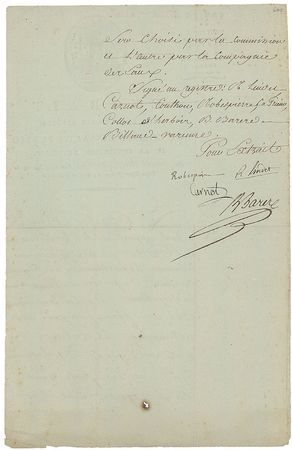 Sera Choisi par la Commission
et L'autre par la Compagnie
des Eaux.
Signé au registre: R. Lindet
Carnot, Couthon, Robespierre, C. a. Prieur,
Collot d'herbois, B. Barere
Billaud varenne.
Pour Extrait
Robespierre R. Lindet
Carnot
B. Barere